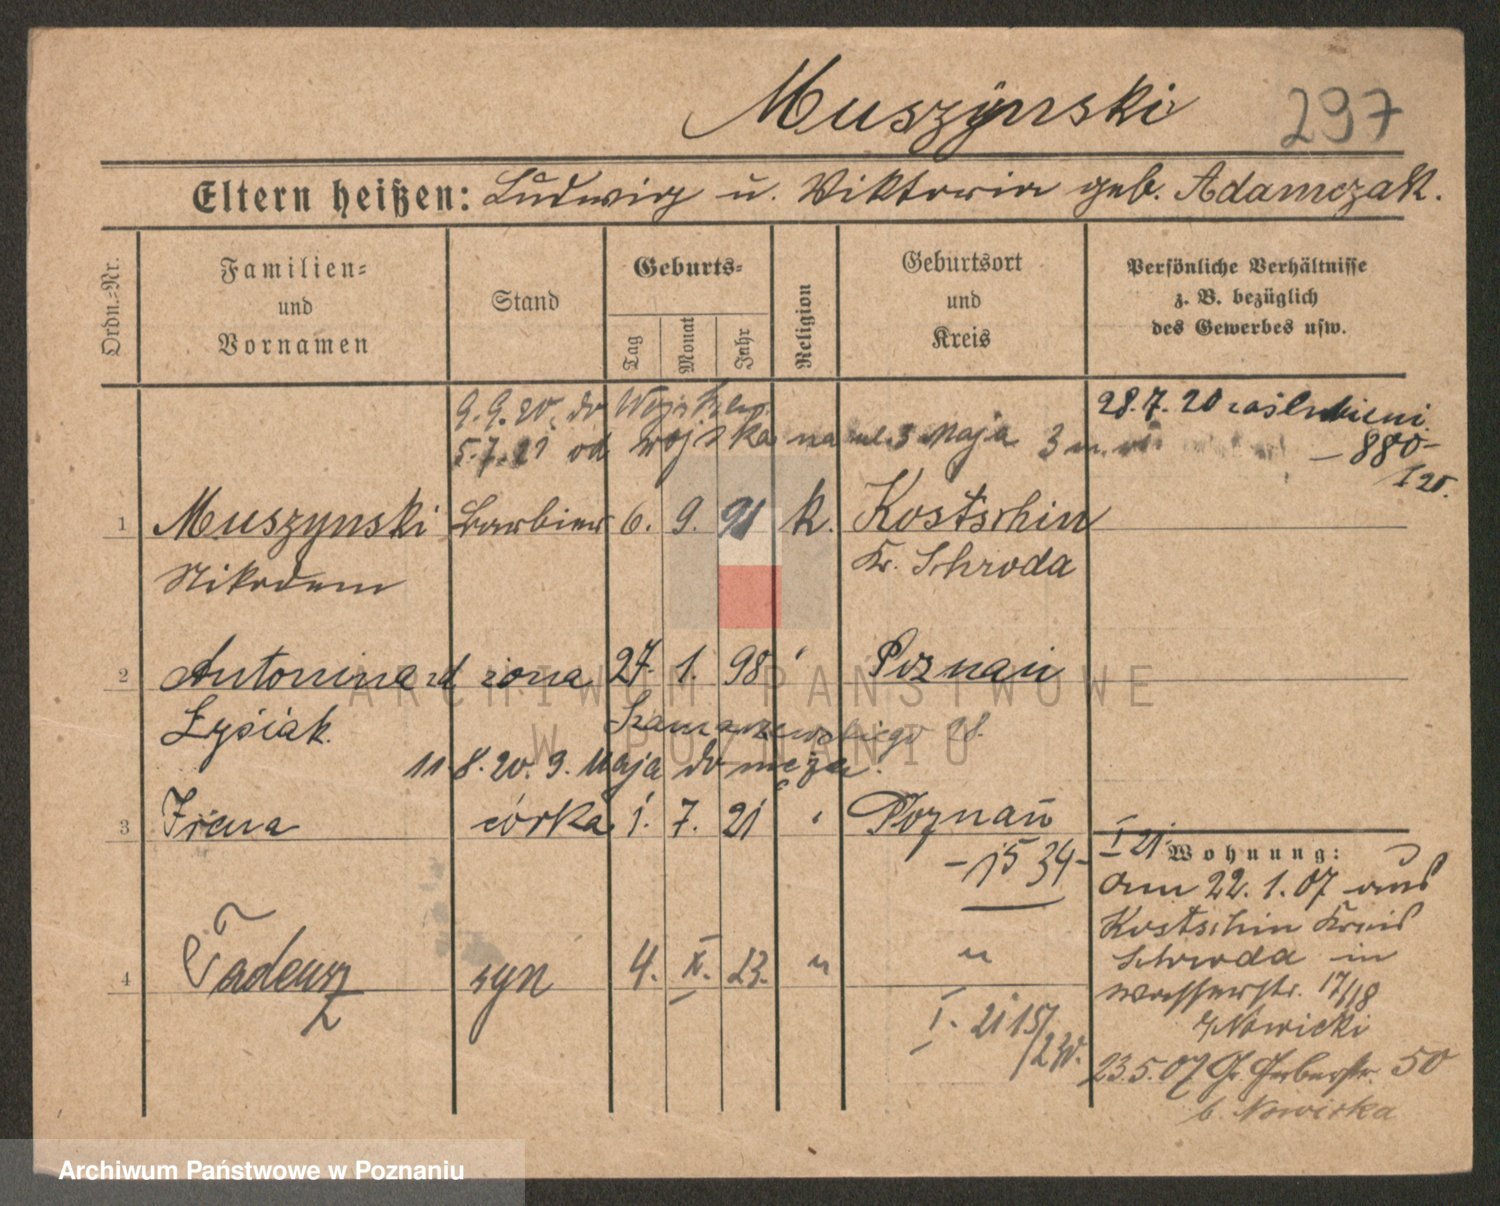 Muszyński 297
Eltern heißen: Ludwig u. Viktoria geb. Adamczak.
Ordn.-Nr.
Familien- und Vornamen
Stand
Geburts-
Tag
Monat
Jahr
Religion
Geburtsort und Kreis
Persönliche Verhältnisse
z. B. bezüglich
des Gewerbes usw.
9.9.20. do Wojska
28.7.20 zaślubieni
5.7.21 od wojska na ul. 3 Maja 3
-880-
I 20.
1 Muszynski Barbier 6. 9. 91 k. Kostschin
Nikodem Kr. Schroda
2 Antonina zd żona 27. 1. 98 Poznań
Łysiak Szamarzewskiego 28.
11.8.20. 3. Maja do męża.
3 Irena córka 1. 7. 21 Poznań
-1534-
4 Tadeusz syn 4. X. 23. " "
I. 21 15/
I 21.
Wohnung:
am 22.1.07 aus
Kostschin Kreis
Schroda in
Wasserstr. 17/18
Nowicki
23.5.07 Gr. Gerberstr. 50
b. Nowicka
ARCHIWUM PAŃSTWOWE
W POZNANIU
Archiwum Państwowe w Poznaniu